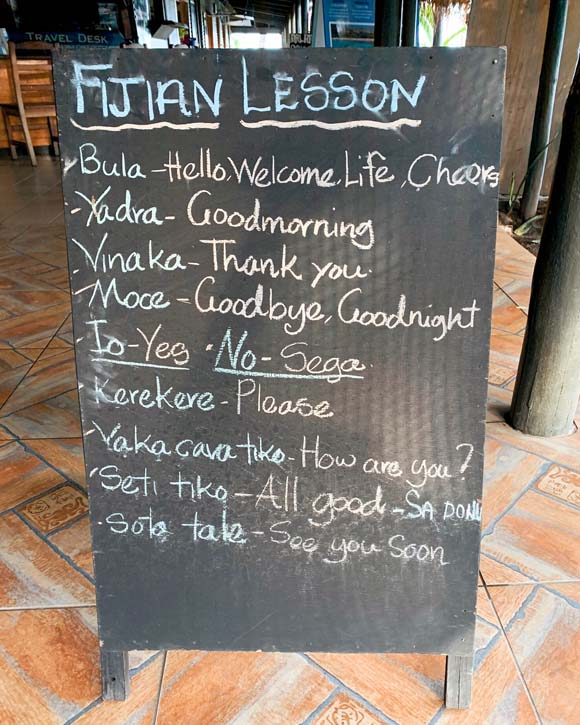 TRAVEL DESK
FIJIAN LESSON
Bula - Hello, Welcome, Life, Cheers
Yadra - Goodmorning
Vinaka - Thank you.
Moce - Goodbye, Goodnight
Io - Yes · No - Sega
Kerekere - Please
Vaka cava tiko - How are you?
Seti tiko - All good - SA DONU
Sota tale - See you Soon